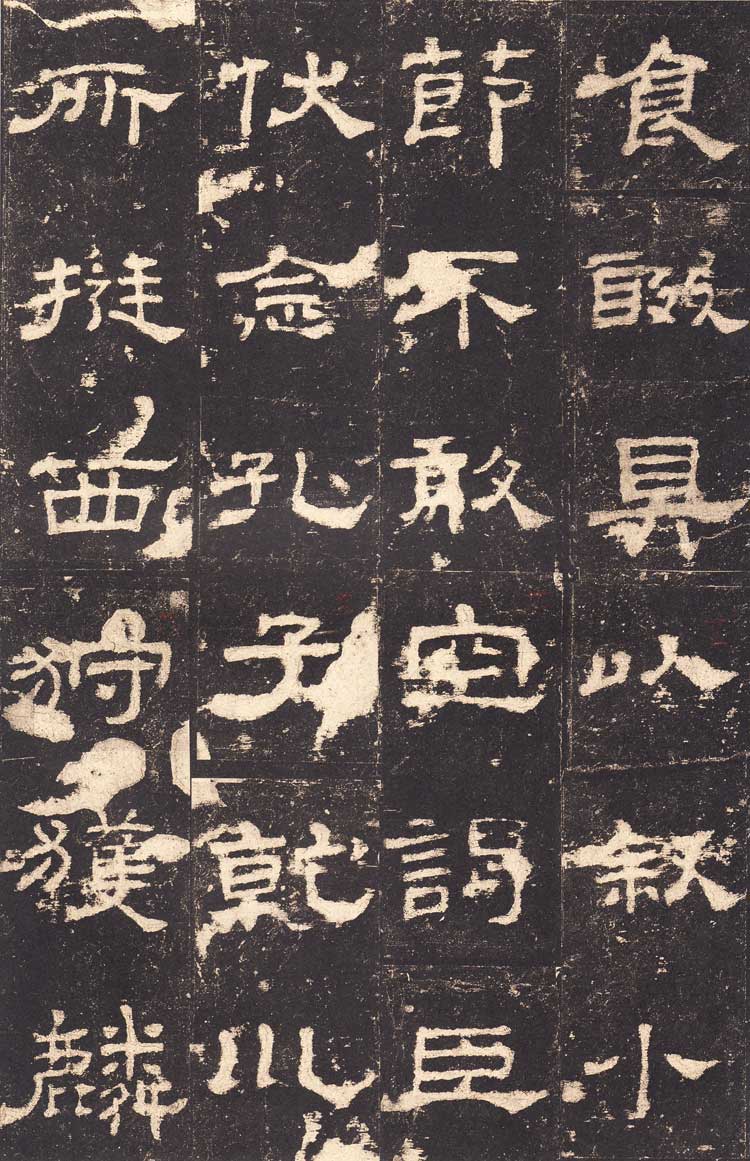 食醊具以敘小
節不敢空謁臣
伏念孔子乾巛
所挺西狩獲麟